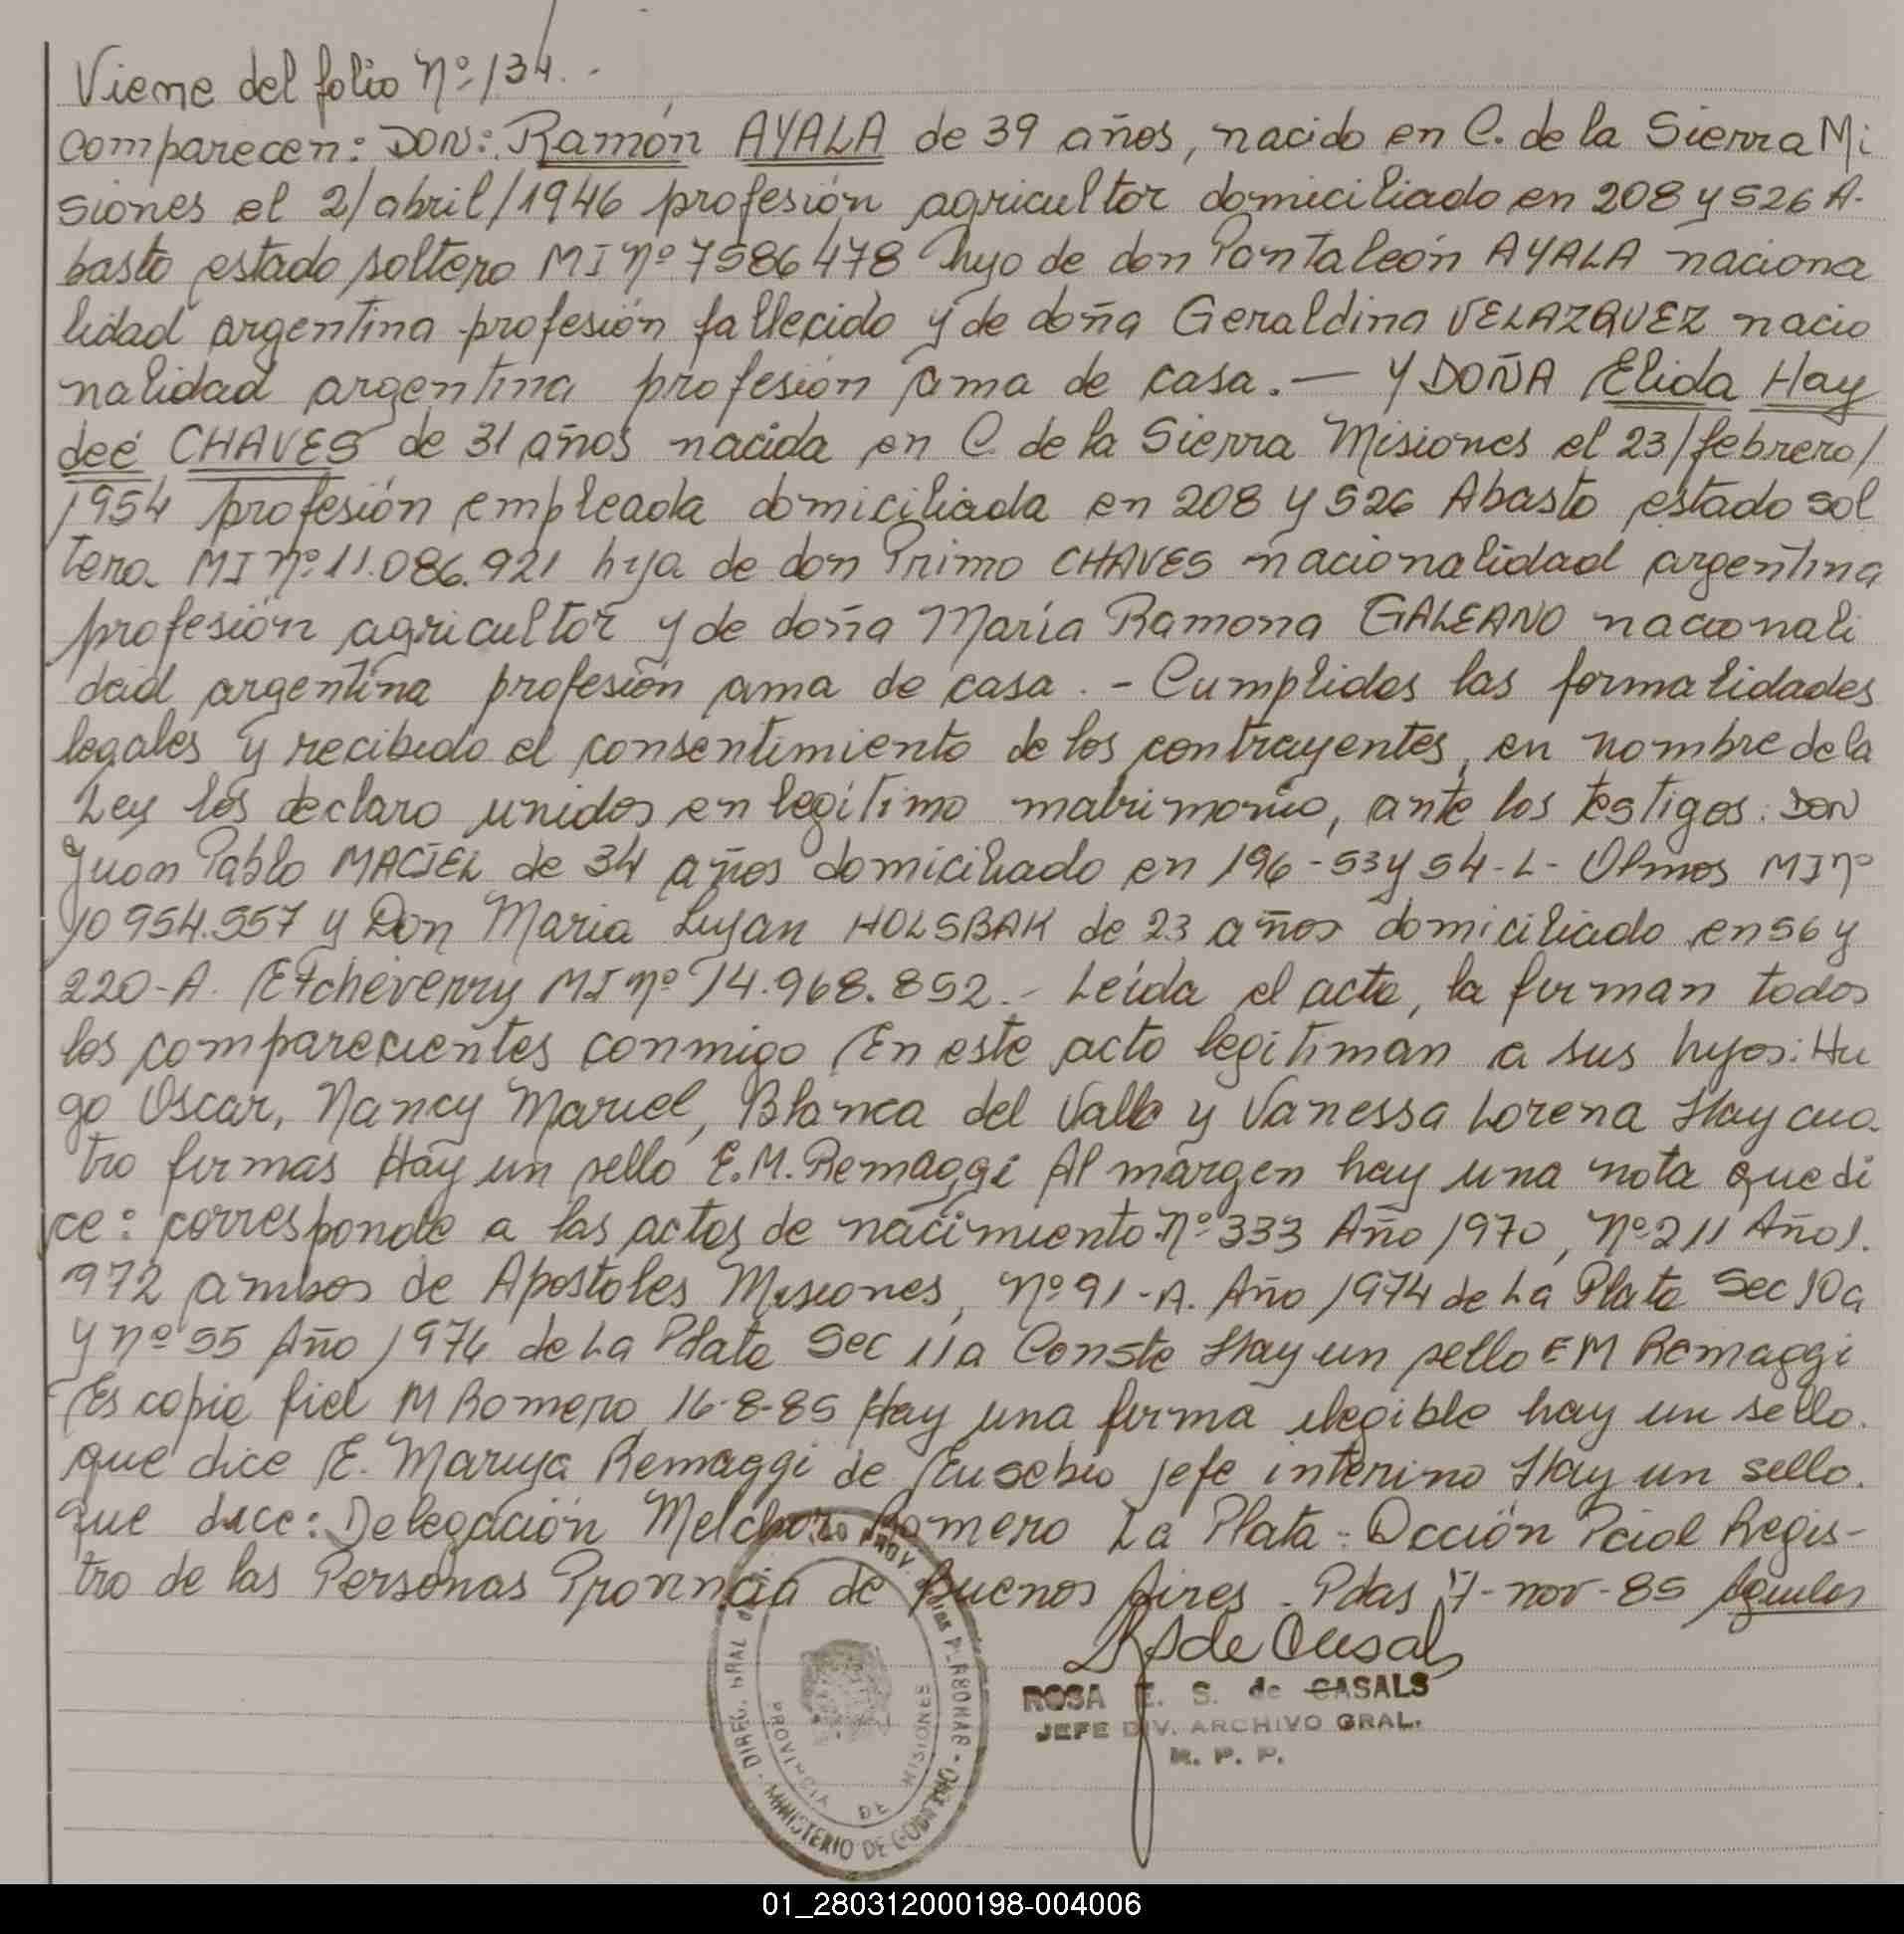 Viene del folio Nº 134.-
Comparecen: DON: Ramón AYALA de 39 años, nacido en C. de la Sierra Mi
siones el 2/abril/1946 profesión agricultor domiciliado en 208 y 526 A-
basto estado soltero MI Nº 7586478 hijo de don Pantaleón AYALA naciona
lidad argentina profesión fallecido y de doña Geraldina VELAZQUEZ nacio
nalidad argentina profesión ama de casa. — Y DOÑA Elida Hay
deé CHAVES de 31 años nacida en C. de la Sierra Misiones el 23/febrero/
1954 profesión empleada domiciliada en 208 y 526 Abasto estado sol
tera MI Nº 11.086.921 hija de don Primo CHAVES nacionalidad argentina
profesión agricultor y de doña María Ramona GALEANO nacionali
dad argentina profesión ama de casa. - Cumplidas las formalidades
legales y recibido el consentimiento de los contrayentes, en nombre de la
Ley los declaro unidos en legítimo matrimonio, ante los testigos: DON
Juan Pablo MACIEL de 34 años domiciliado en 196-53 y 54-L-Olmos MI Nº
10 954.557 y Don Maria Lujan HOLSBAK de 23 años domiciliado en 56 y
220-A. Etcheverry MI Nº 14.968.852.- Leída el acta, la firman todos
los comparecientes conmigo En este acto legitiman a sus hijos: Hu
go Oscar, Nancy Mariel, Blanca del Valle y Vanessa Lorena Hay cua-
tro firmas Hay un sello E.M. Remaggi Al márgen hay una nota que di
ce: corresponde a las actas de nacimiento Nº 333 Año 1970, Nº 211 Año 1.
972 ambos de Apostoles Misiones, Nº 91-A. Año 1974 de La Plata Sec 10a
y Nº 55 Año 1976 de La Plata Sec 11a Conste Hay un sello E M Remaggi
Es copia fiel M Romero 16-8-85 Hay una firma ilegible hay un sello.
que dice E. Maruja Remaggi de Eusebio jefe interino Hay un sello.
que dice: Delegación Melchor Romero La Plata - Dcción Pcial Regis-
tro de las Personas Provincia de Buenos Aires - Pdas 7-nov-85
ROSA E. S. de CASALS
JEFE DIV. ARCHIVO GRAL.
R. P. P.
PROVINCIA DE MISIONES
MINISTERIO DE
01_280312000198-004006